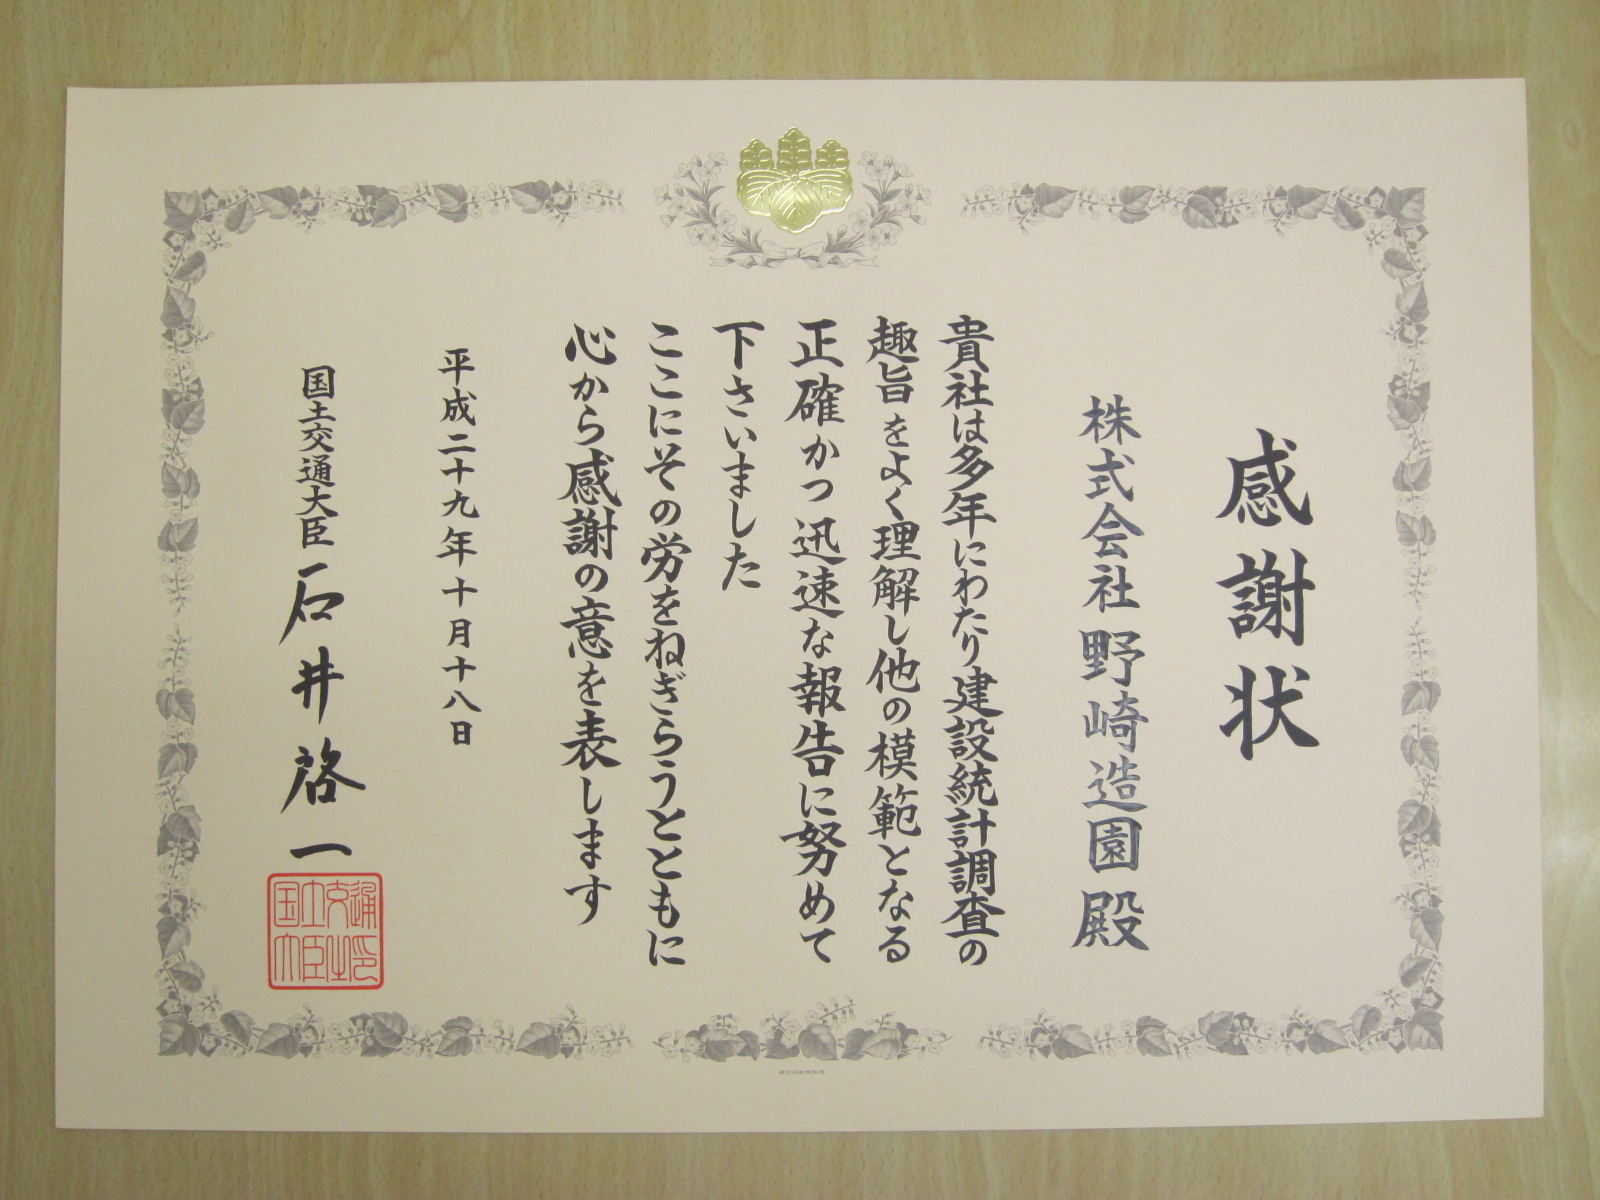 感謝状
株式会社野崎造園殿
貴社は多年にわたり建設統計調査の
趣旨をよく理解し他の模範となる
正確かつ迅速な報告に努めて
下さいました
ここにその労をねぎらうとともに
心から感謝の意を表します
平成二十九年十月十八日
国土交通大臣 石井啓一
国土交通
大臣之印